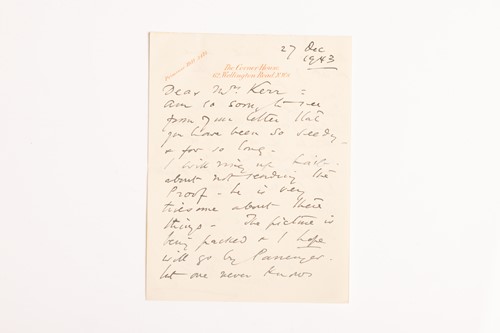 27 Dec
1943
Primrose Hill
The Corner House
Wellington Road N.W.8
Dear Mrs Kerr =
Am so sorry to see
from your letter that
you have been so seedy -
& for so long -
I will ring up
about not sending the
Proof - he is very
tiresome about these
things - The picture is
being packed & I hope
will go by Passenger -
but one never knows